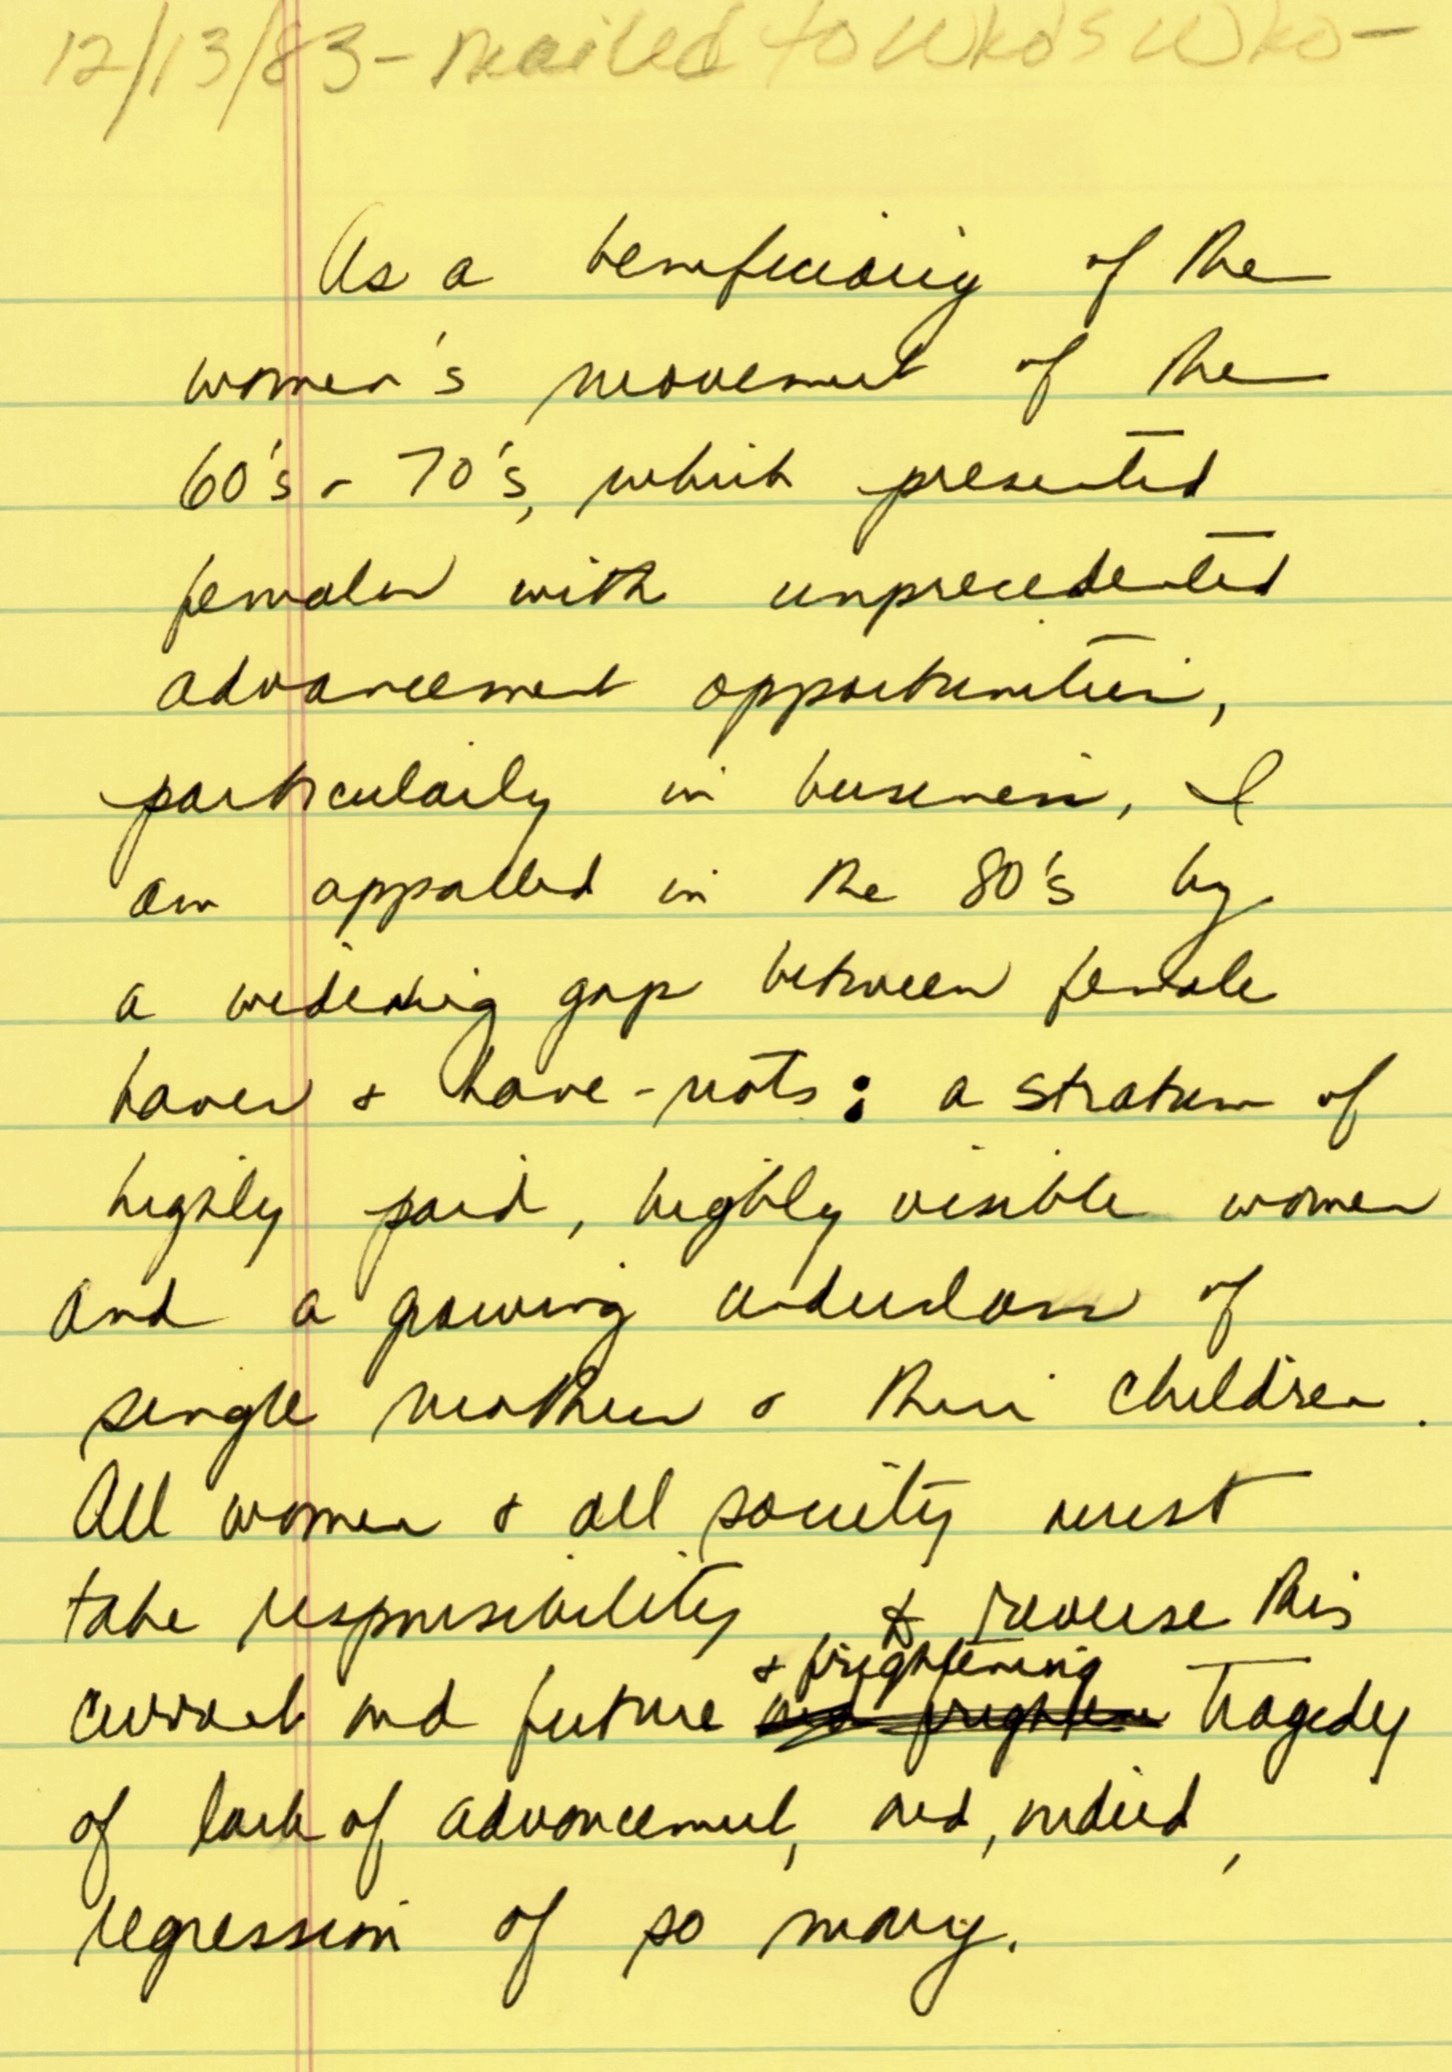 12/13/83 - mailed to Who's Who -
As a beneficiary of the
women's movement of the
60's - 70's, which presented
females with unprecedented
advancement opportunities,
particularly in business, I
am appalled in the 80's by
a widening gap between female
haves & have-nots: a stratum of
highly paid, highly visible women
and a growing underclass of
single mothers & their children.
All women & all society must
take responsibility & reverse this
& frightening
current and future and frighten tragedy
of lack of advancement, and, indeed,
regression of so many.